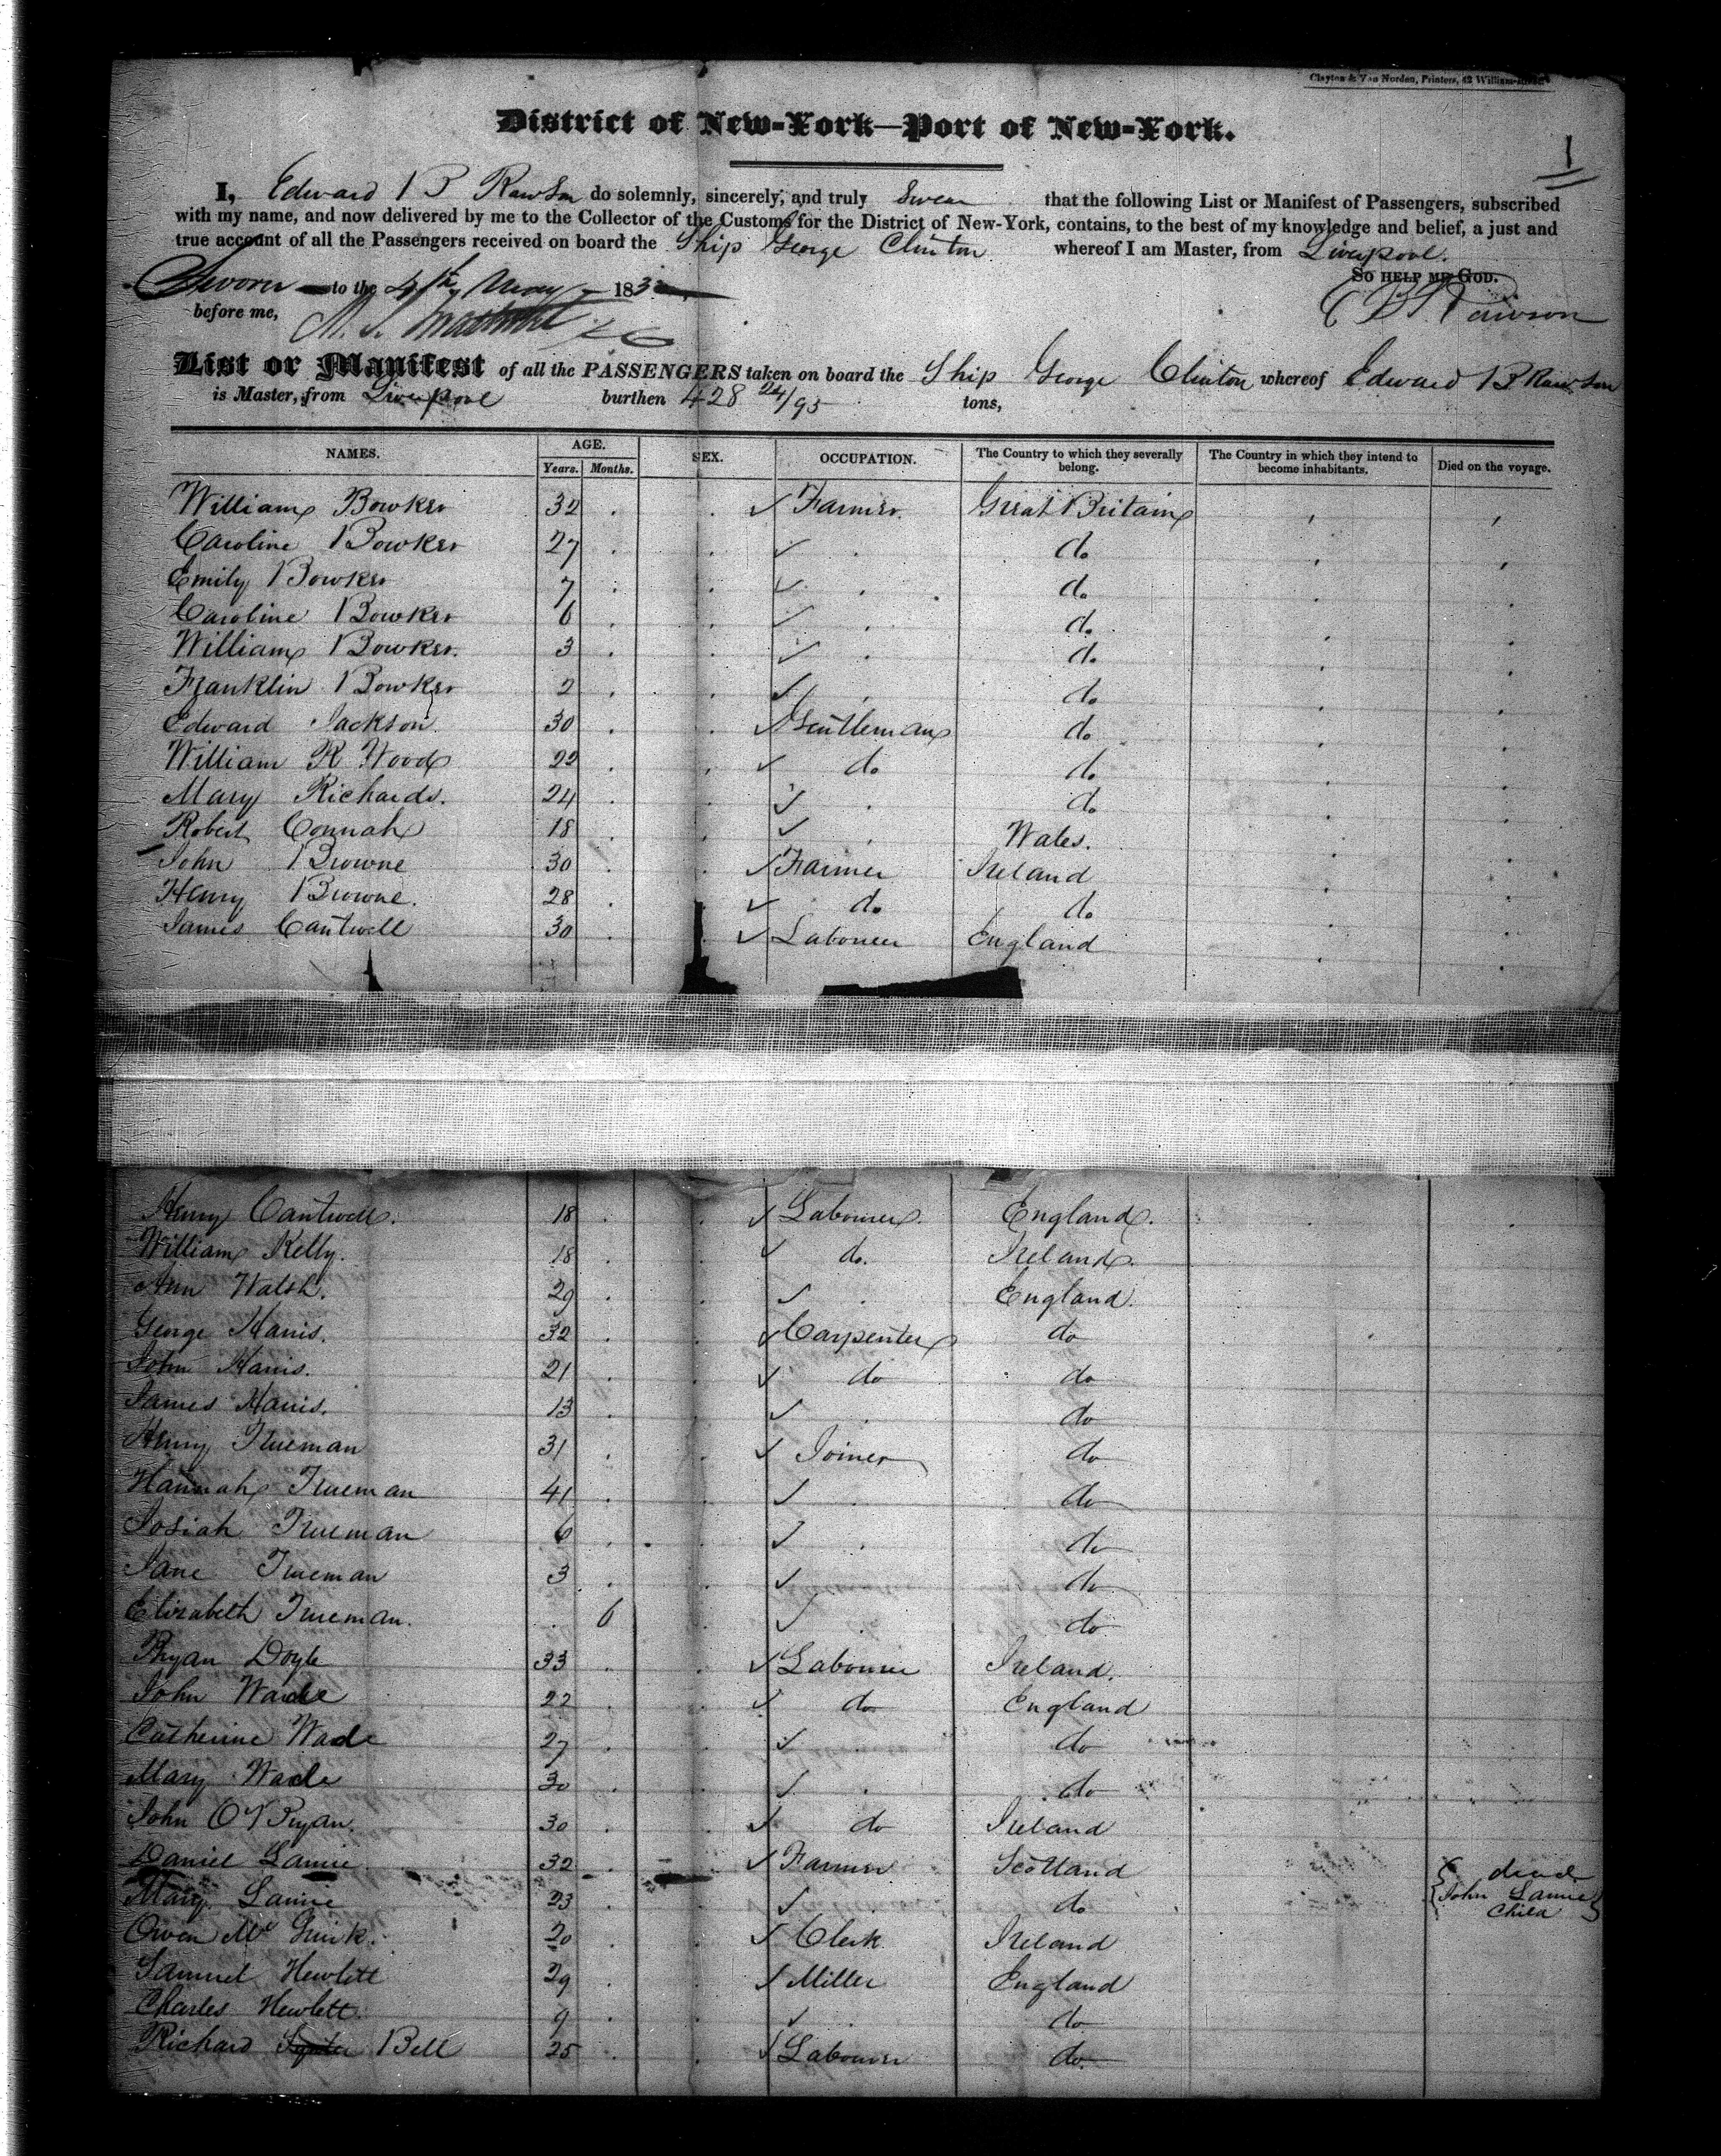 Clayton & Van Norden, Printers, 42 William-street
District of New-York—Port of New-York.
1
I, Edward B Rawson do solemnly, sincerely, and truly Swear that the following List or Manifest of Passengers, subscribed
with my name, and now delivered by me to the Collector of the Customs for the District of New-York, contains, to the best of my knowledge and belief, a just and
true account of all the Passengers received on board the Ship George Clinton whereof I am Master, from Liverpool.
So help me God.
Sworn to the 4th May 183
before me,
E B Rawson
List or Manifest of all the PASSENGERS taken on board the Ship George Clinton whereof Edward B Rawson
is Master, from Liverpool burthen 428 24/95 tons,
NAMES. AGE. SEX. OCCUPATION. The Country to which they severally belong. The Country in which they intend to become inhabitants. Died on the voyage.
Years. Months.
William Bowker 32 Farmer Great Britain
Caroline Bowker 27 do
Emily Bowker 7 do
Caroline Bowker 6 do
William Bowker 3 do
Franklin Bowker 2 do
Edward Jackson 30 Gentleman do
William R Wood 22 do do
Mary Richards. 24 do
Robert Connah 18 Wales.
John Browne 30 Farmer Ireland
Henry Browne. 28 do do
James Cantwell 30 Labourer England
Henry Cantwell. 18 Labourer England.
William Kelly. 18 do. Ireland.
Ann Walsh. 29 England.
George Harris. 32 Carpenter do
John Harris. 21 do do
James Harris. 13 do
Henry Trueman 31 Joiner do
Hannah Trueman 41 do
Josiah Trueman 6 do
Jane Trueman 3 do
Elizabeth Trueman. 6 do
Bryan Doyle 33 Labourer Ireland.
John Wade 22 do England
Catherine Wade 27 do
Mary Wade 30 do
John O'Bryan. 30 do Ireland
Daniel Lamie 32 Farmer Scotland dead
Mary Lamie 23 do John Lamie
Child
Owen Mc Guirk. 20 Clerk Ireland
Samuel Hewlett 29 Miller England
Charles Hewlett. 9 do
Richard Bell 25 Labourer do.